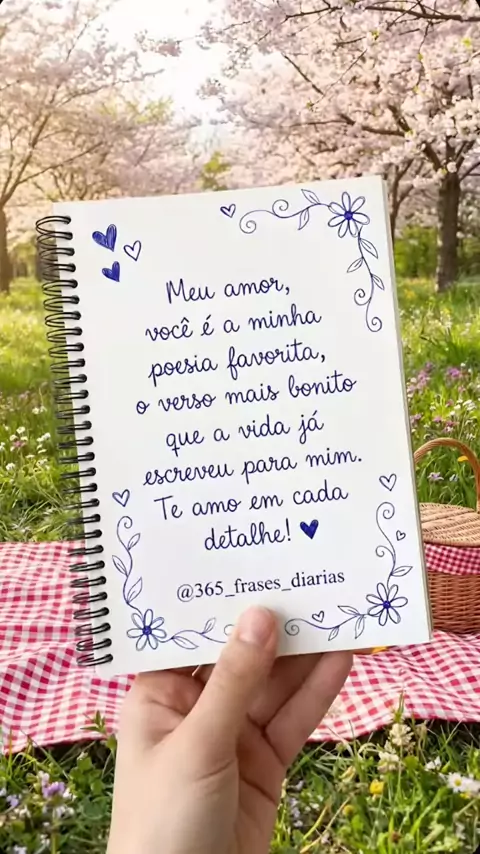 Meu amor,
você é a minha
poesia favorita,
o verso mais bonito
que a vida já
escreveu para mim.
Te amo em cada
detalhe!
@365_frases_diarias